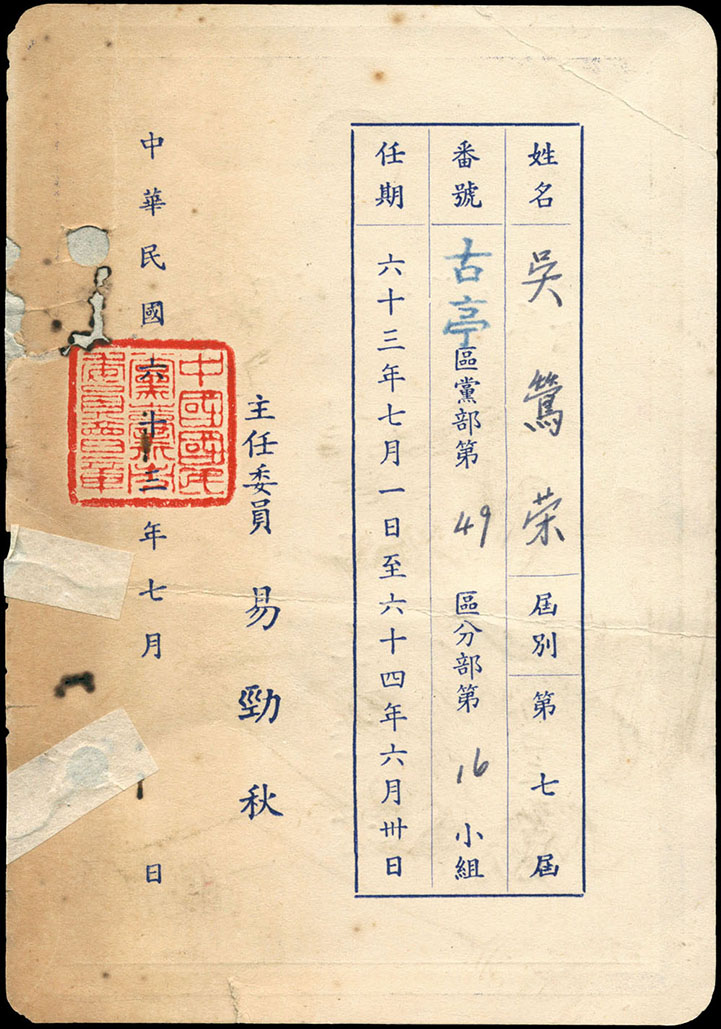 姓名 吳鶯荣 屆別 第七屆
番號 古亭區黨部第49區分部第16小組
任期 六十三年七月一日至六十四年六月卅日
主任委員 易勁秋
中華民國六十三年七月 日
中國國民
黨
委員會